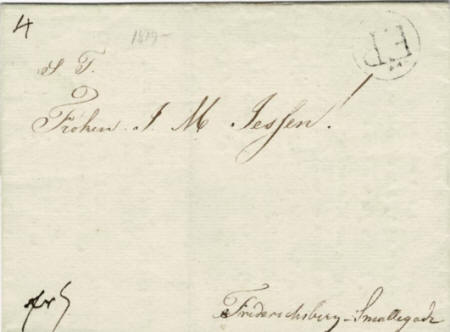 4
1819-
FP
S T.
Frøken J. M Jessen!
Frideriechsberg-Smallegade